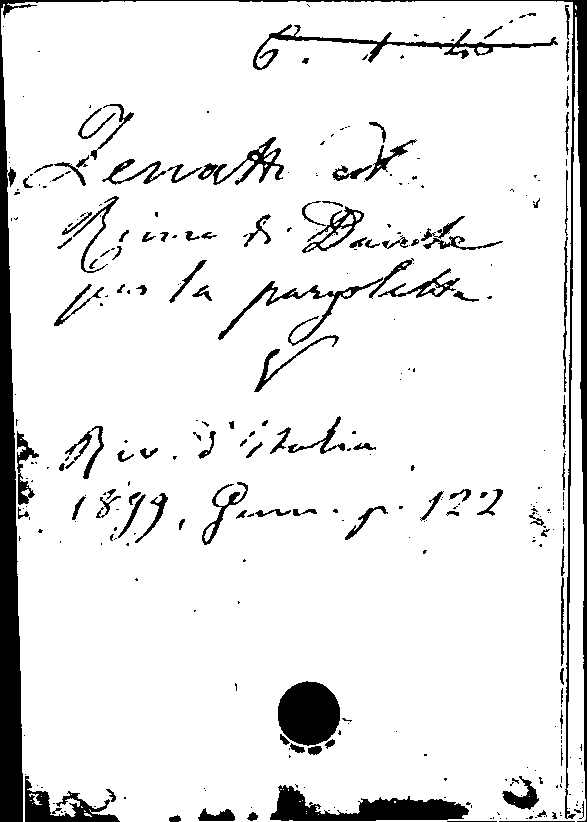 6. 1. 46
Zenatti A.
Rime di Dante
per la pargoletta.
V
Riv. d'Italia
1899, Genn. p. 122